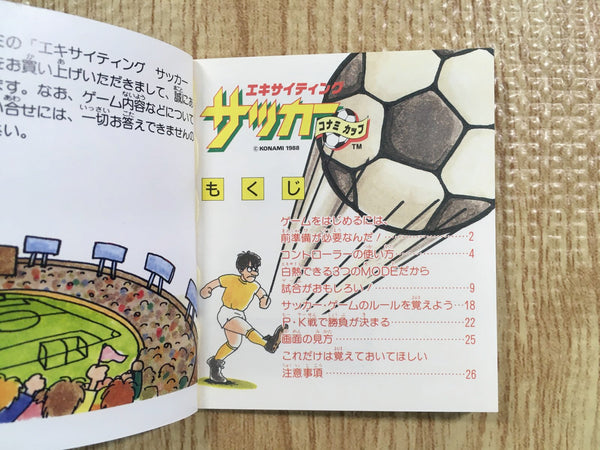 ミの「エキサイティング サッカー
をお買い上げいただきまして、誠に
です。なお、ゲーム内容などについて
い合せには、一切お答えできませんの
さい。
エキサイティング
サッカー
コナミ カップ
TM
© KONAMI 1988
もくじ
ゲームをはじめるには
前準備が必要なんだ!………………2
コントローラーの使い方……………4
白熱できる3つのMODEだから
試合がおもしろい!…………………9
サッカー・ゲームのルールを覚えよう…18
P・K戦で勝負が決まる……………22
画面の見方……………………………25
これだけは覚えておいてほしい
注意事項………………………………26